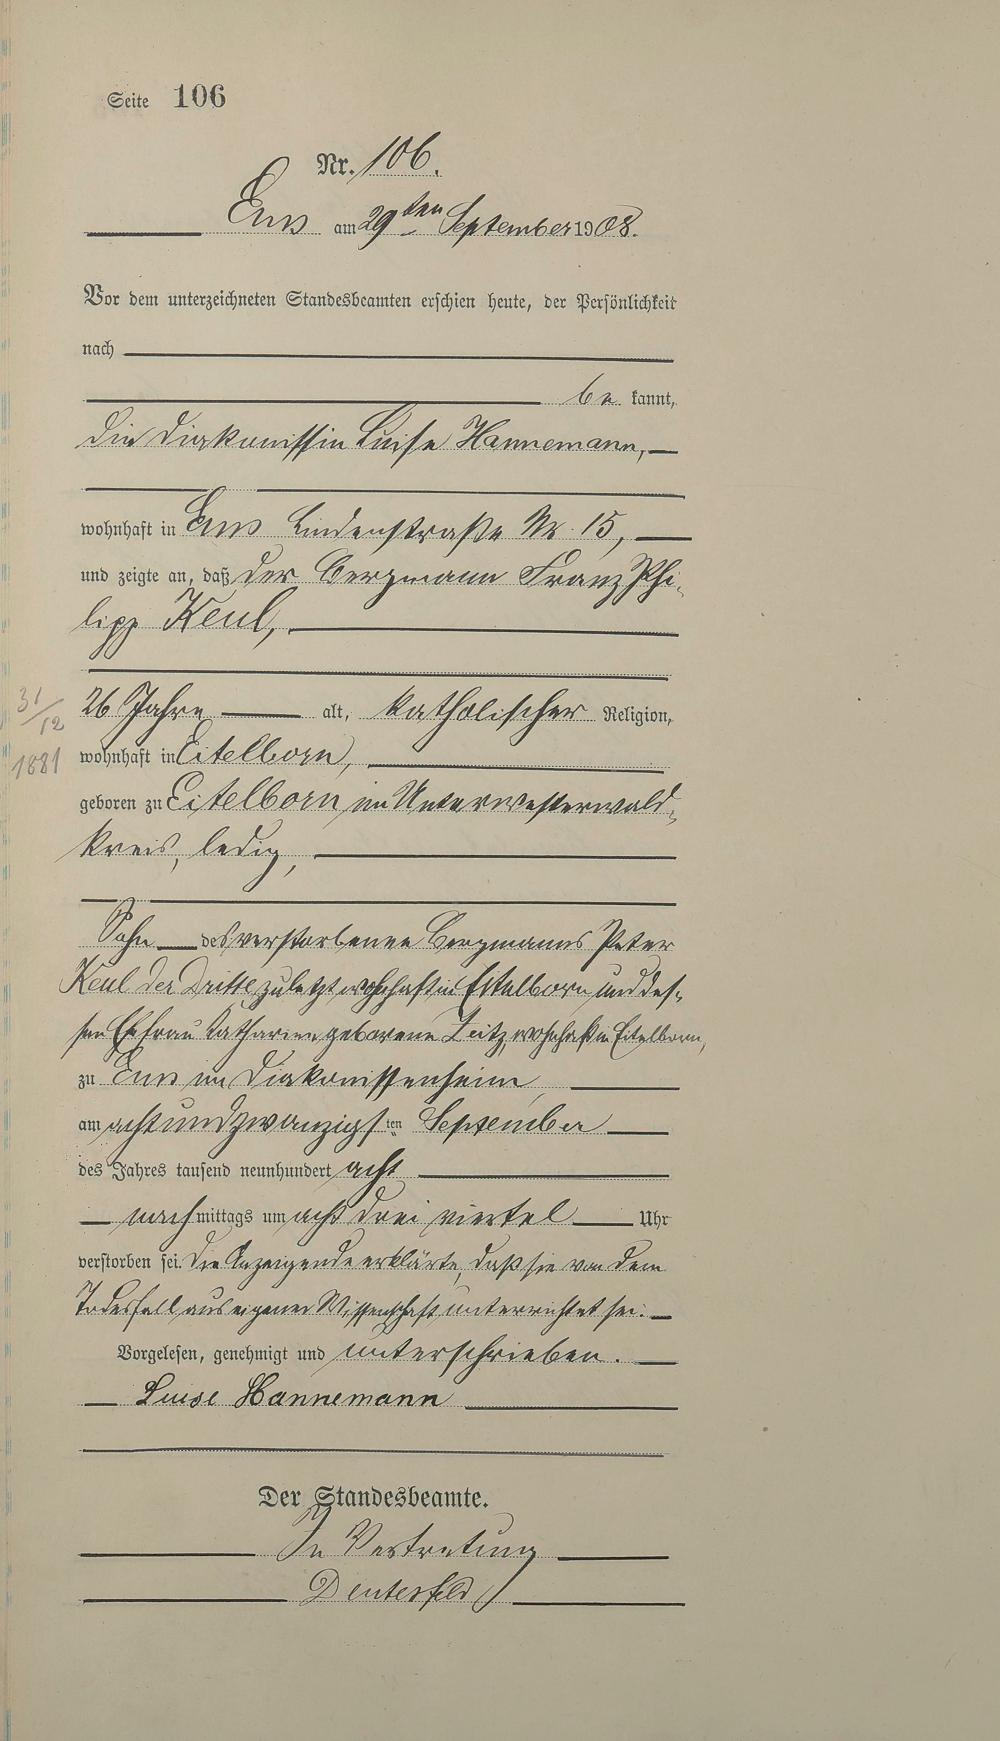 Seite 106
Nr. 106.
Ems am 29ten September 1908.
Vor dem unterzeichneten Standesbeamten erschien heute, der Persönlichkeit
nach
be kannt,
die Diakonissin Luise Hannemann,
wohnhaft in Ems Lindenstraße Nr. 15,
und zeigte an, daß der Bergmann Franz Phi-
lipp Keul,
31/12
1881
26 Jahre alt, katholischer Religion,
wohnhaft in Eitelborn,
geboren zu Eitelborn im Unterwesterwald-
kreis, ledig,
Sohn des verstorbenen Bergmanns Peter
Keul der Dritte, zuletzt wohnhaft in Eitelborn und des-
sen Ehefrau Katharine geborene Zeitz, wohnhaft in Eitelborn,
zu Ems im Diakonissenheim,
am achtundzwanzigsten September
des Jahres tausend neunhundert acht
nachmittags um acht drei viertel Uhr
verstorben sei. Die Anzeigende erklärte, daß sie von dem
Todesfall aus eigener Wissenschaft unterrichtet sei.
Vorgelesen, genehmigt und unterschrieben.
Luise Hannemann
Der Standesbeamte.
In Vertretung